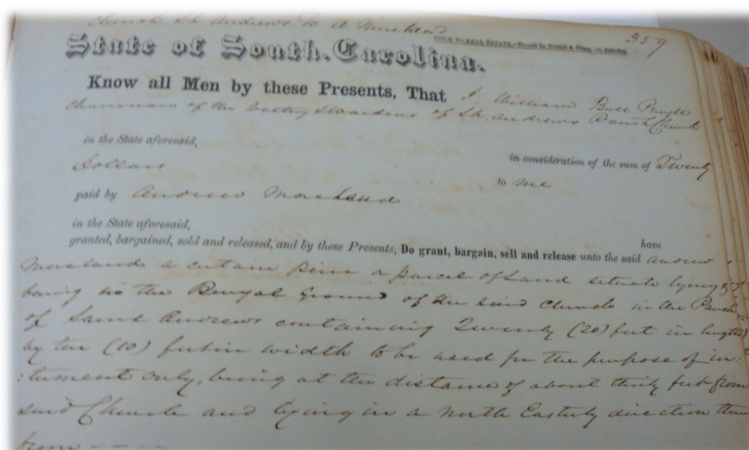 Church St Andrews to A Moreland
359
State of South-Carolina.
TITLE TO REAL ESTATE
Know all Men by these Presents, That I, William Bull Pringle
Chairman of the Vestry & Wardens of St Andrews Parish Church
in the State aforesaid,
in consideration of the sum of Twenty
Dollars
to me
paid by Andrew Moreland
in the State aforesaid,
have
granted, bargained, sold and released, and by these Presents, Do grant, bargain, sell and release unto the said Andrew
Moreland a certain piece a parcel of Land situate lying &
being in the Ground of the said Church in the Parish
of Saint Andrews containing Twenty (20) feet in length
by ten (10) feet in width to be used for the purpose of in-
:terment only, being at the distance of about thirty feet from
said Church and lying in a North Easterly direction there
from